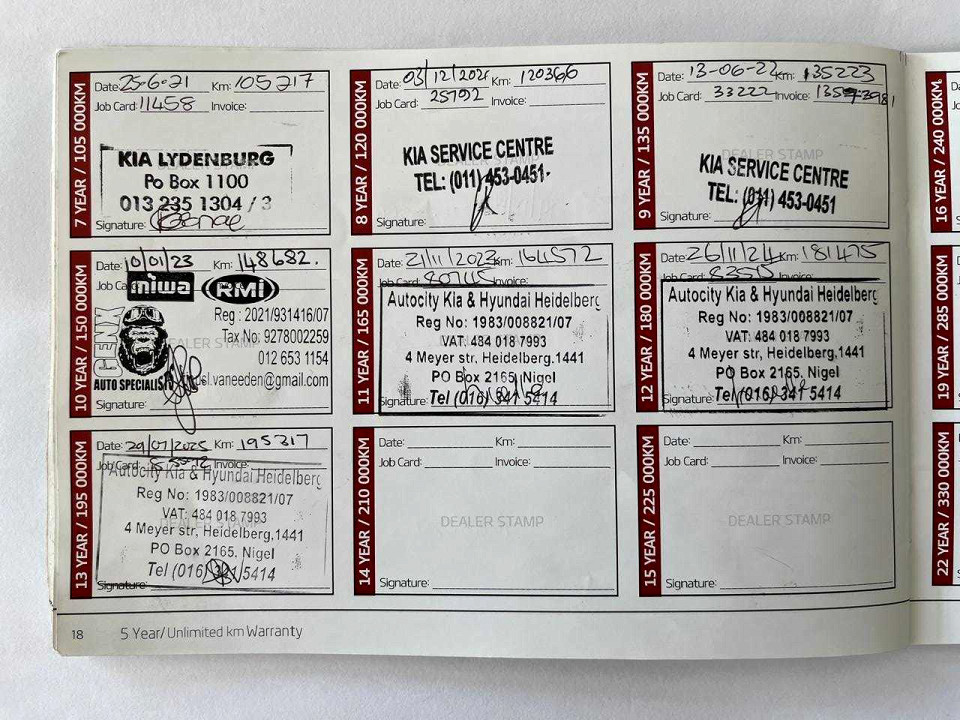 7 YEAR / 105 000KM
Date: 25-6-21 Km: 105217
Job Card: 11458 Invoice:
DEALER STAMP
KIA LYDENBURG
Po Box 1100
013 235 1304 / 3
Signature:
8 YEAR / 120 000KM
Date: 03/12/2021 Km: 120366
Job Card: 25792 Invoice:
DEALER STAMP
KIA SERVICE CENTRE
TEL: (011) 453-0451
Signature:
9 YEAR / 135 000KM
Date: 13-06-22 Km: 135223
Job Card: 33222 Invoice:
DEALER STAMP
KIA SERVICE CENTRE
TEL: (011) 453-0451
Signature:
16 YEAR / 240 000KM
10 YEAR / 150 000KM
Date: 10/01/23 Km: 148682.
Job Ca
miwa RMI
Reg : 2021/931416/07
Tax No: 9278002259
DEALER STAMP
012 653 1154
AUTO SPECIALIS
sl.vaneeden@gmail.com
Signature:
11 YEAR / 165 000KM
Date: 21/11/2023 Km: 164572
Job Card: 80745 Invoice:
Autocity Kia & Hyundai Heidelberg
Reg No: 1983/008821/07
VAT: 484 018 7993
4 Meyer str, Heidelberg,1441
PO Box 2165, Nigel
Signature: Tel (016) 341 5414
12 YEAR / 180 000KM
Date: 26/11/24 Km: 181475
Job Card: Invoice:
Autocity Kia & Hyundai Heidelberg
Reg No: 1983/008821/07
VAT: 484 018 7993
4 Meyer str, Heidelberg,1441
PO Box 2165, Nigel
Signature: Tel (016) 341 5414
19 YEAR / 285 000KM
13 YEAR / 195 000KM
Date: 29/07/2025 Km: 195317
Job Card: Invoice:
Autocity Kia & Hyundai Heidelberg
Reg No: 1983/008821/07
VAT: 484 018 7993
4 Meyer str, Heidelberg,1441
PO Box 2165, Nigel
Tel (016) 341 5414
Signature:
14 YEAR / 210 000KM
Date: Km:
Job Card: Invoice:
DEALER STAMP
Signature:
15 YEAR / 225 000KM
Date: Km:
Job Card: Invoice:
DEALER STAMP
Signature:
22 YEAR / 330 000KM
18 5 Year/ Unlimited km Warranty